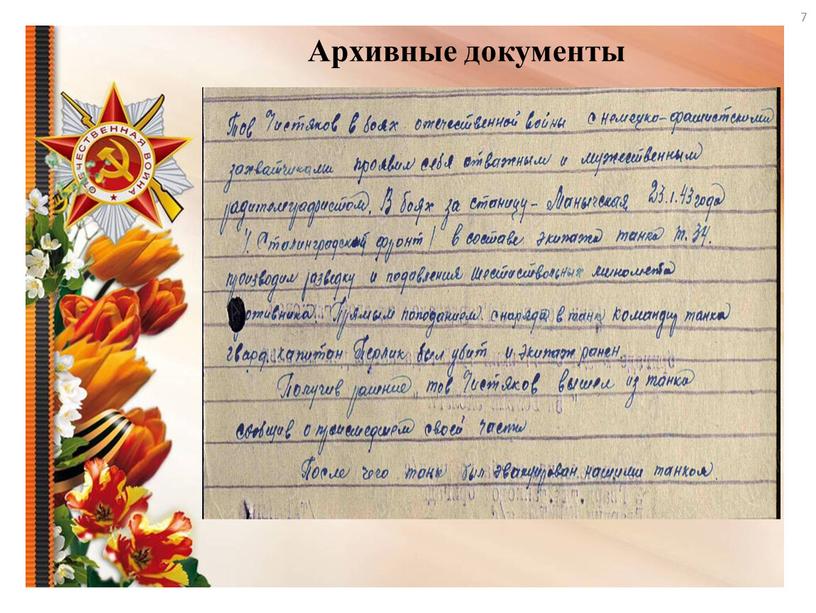 7
Архивные документы
ОТЕЧЕСТВЕННАЯ ВОЙНА
Тов Чистяков в боях отечественной войны с немецко-фашистскими
захватчиками проявил себя отважным и мужественным
радителеграфистом. В боях за станицу - Манычская 23.1.43 года
/. Сталинградский фронт/ в составе экипажа танка т. 34.
производил разведку и подавления шестиствольных миномета
ротивника. Прямым попаданием снаряда в танк командир танка
гвард. капитан был убит и экипаж ранен.
Получив ранение, тов Чистяков вышел из танка
сообщив о происшедшем своей части
После чего танк был эвакуирован нашими танком.